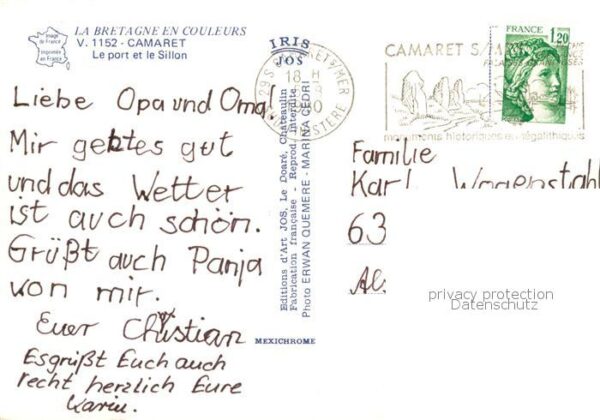 LA BRETAGNE EN COULEURS
V. 1152 - CAMARET
Le port et le Sillon
Image de France
Imprimée en France
Liebe Opa und Oma!
Mir geht es gut
und das Wetter
ist auch schön.
Grüßt auch Panja
von mir.
Euer Christian
Es grüßt Euch auch
recht herzlich Eure
Karin.
IRIS
JOS
Editions d'Art JOS, Le Doaré, Chateaulin
Fabrication française Reprod. interdite
Photo ERWAN QUEMERE - MARINA CEDRI
MEXICHROME
18 H
CAMARET S/M
monuments historiques et mégalithiques
FRANCE
1,20
Familie
Karl
63
privacy protection
Datenschutz